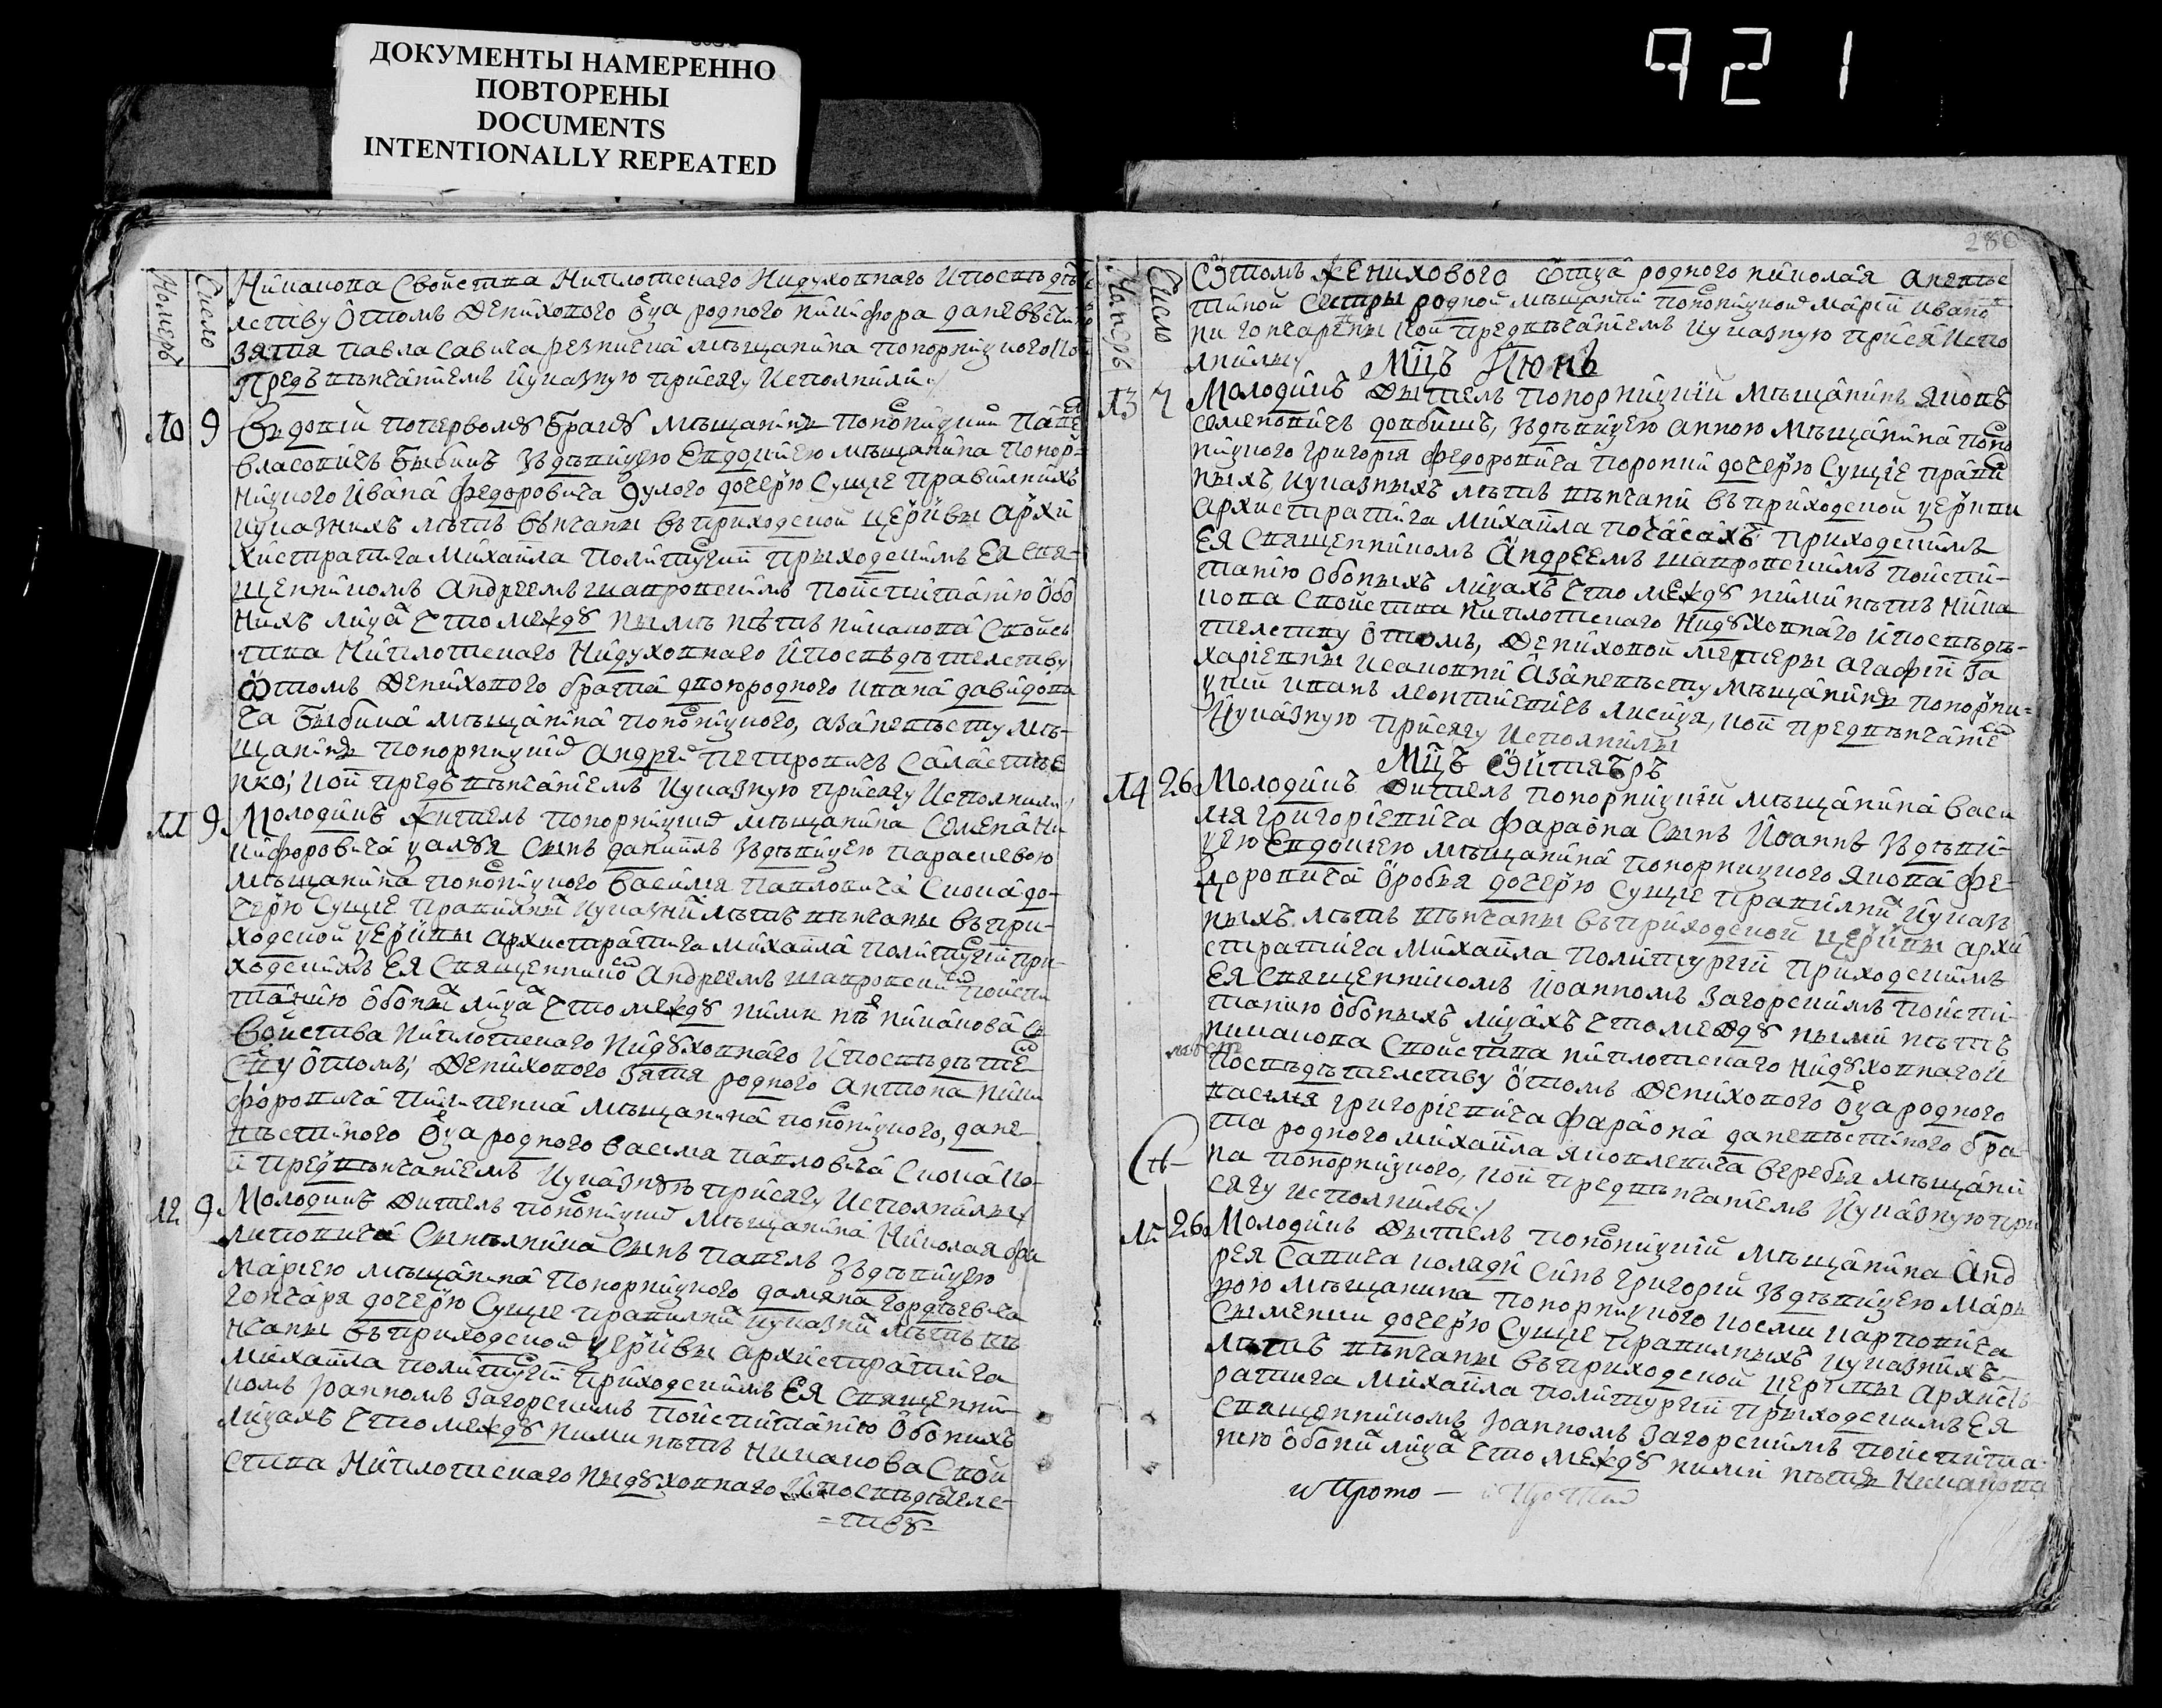 ДОКУМЕНТЫ НАМЕРЕННО
ПОВТОРЕНЫ
DOCUMENTS
INTENTIONALLY REPEATED
921
280
Номеръ
Число
Никакова свойства ниплотскаго нидуховнаго ипосвѣдѣ
лству ѡтомъ женихового ѡца родного никифора даневѣстино
зятя павла савича резника мѣщанина понорницкого кой
Предъ вѣнчаніемъ иуказную присягу исполнили
10 9 Вдовій поперволу бракѣ мѣщанинъ понорницкий Павел
власовичъ Быбикъ здѣвицею Евдокиею мѣщанина понор-
ницкого Ивана Федоровича дочерю сущіе правилнихъ
иуказнихъ лѣтъ вѣнчаны въприходской церкви Архи
хистратига Михаила политургіи прыходскимъ Ея свя-
щенникомъ Андреемъ шапровскимъ поиспитанію ѡбо
нихъ лица что между нымы нѣтъ никакова свойс
тва ниплотскаго нидуховнаго ипосвѣдѣтелству
ѡтомъ женихового брата двоюродного ивана давидови
ча Быбика мѣщанина понорницкого, азаневѣсту мѣ-
щанинъ понорницкий Андрей Петровичъ
нко, кои предъ вѣнчаніемъ иуказную присягу исполнили
11 9 Молодикъ житель понорницкий мѣщанина Семена Ни
кифоровича сынъ даниилъ здѣвицею параскевою
мѣщанина понорницкого василия павловича до-
черю сущіе правилны иуказны лѣтъ вѣнчаны въпри-
ходской церквы архистратига михаила политургіи при-
ходскимъ Ея священнико Андреемъ шапровски поиспи
танию ѡбоны лица что между ними нѣ никакова
Свойства ниплотскаго нидуховнаго ипосвѣдѣте
ству ѡтомъ, женихового зятя родного Антона Ники
форовича мѣщанина понорницкого, дане
вѣстиного ѡца родного василия павловича ко-
и предвѣнчаніемъ иуказную присягу исполнилы
12 9 Молодикъ житель понорницкий мѣщанина Николая фи
липовича сынъ павелъ здѣвицею
Мариею мѣщанина понорницкого дамяна гордѣевича
гончаря дочерю сущіе правилни иуказни лѣтъ вѣ
нчаны въприходской церквы архистратига
михаила политургіи приходскимъ Ея священни-
комъ Іоанномъ Загорскимъ поиспитанію ѡбонихъ
лицахъ что между ними нѣтъ никакова свой
ства ниплотскаго ныдуховнаго ипосвѣдѣтелс-
=тву=
Номеръ
Число
ѡтомъ женихового ѡтца родного николая аневѣс
тиной сестры родной мѣщанки понорницкой маріи ивано
ни гончаревны кои предвѣнчаніемъ иуказную прися испо
лнилы
Мцъ Июнь
13 7 Молодикъ житель понорницкій мѣщанинъ Яковъ
семеновичъ довбишъ, здѣвицею анною мѣщанина поно
ницкого григорія федоровича дочерю сущіе прави
ныхъ иуказныхъ лѣтъ вѣнчани въприходской церкви
архистратига Михаила почасахъ приходскимъ
Ея священникомъ Андреемъ шапровскимъ поиспи-
танію обоныхъ лицахъ что между ними нѣтъ ника
кова свойства ниплотскаго нидуховнаго ипосвѣдѣ-
телству ѡтомъ, жениховой матеры агафіи За
азаневѣсту мѣщанинъ понорни-
цкий иванъ леонтиевичъ лисица, кои предвѣнчаніе
Иуказную присягу исполнилы
Мцъ ѡктябръ
14 26 Молодикъ житель понорницкій мѣщанина васи
лия григоріевича фараона сынъ Иоаннъ здѣви-
цею Евдокиею мѣщанина понорницкого Якова фе-
доровича дочерю сущіе правилни иуказ
ныхъ лѣтъ вѣнчаны въприходской церквы архи
стратига михаила политургіи приходскимъ
Ея священникомъ Іоанномъ Загорскимъ поиспи-
танию обоныхъ лицахъ что между ными нѣтъ
никакова свойства ниплотскаго нидуховнаго и
посвѣдѣтелству ѡтомъ женихового ѡца родного
василия григоріевича фараона даневѣстиного бра
та родного михаила яковлевича мѣщани
на понорницкого, кои предвѣнчаніемъ иуказную при
сягу исполнилы
15 26 Молодикъ житель понорницкій мѣщанина Анд
рея Савича коляди синъ григорій здѣвицею Мари
ною мѣщанина понорницкого
дочерю сущіе правилныхъ иуказнихъ
лѣтъ вѣнчаны въприходской церквы Архист
ратига михаила политургіи прыходскимъ Ея
священникомъ Іоанномъ Загорскимъ поиспита
нию ѡбони лица что между ними нѣтъ никакова
и Прото —